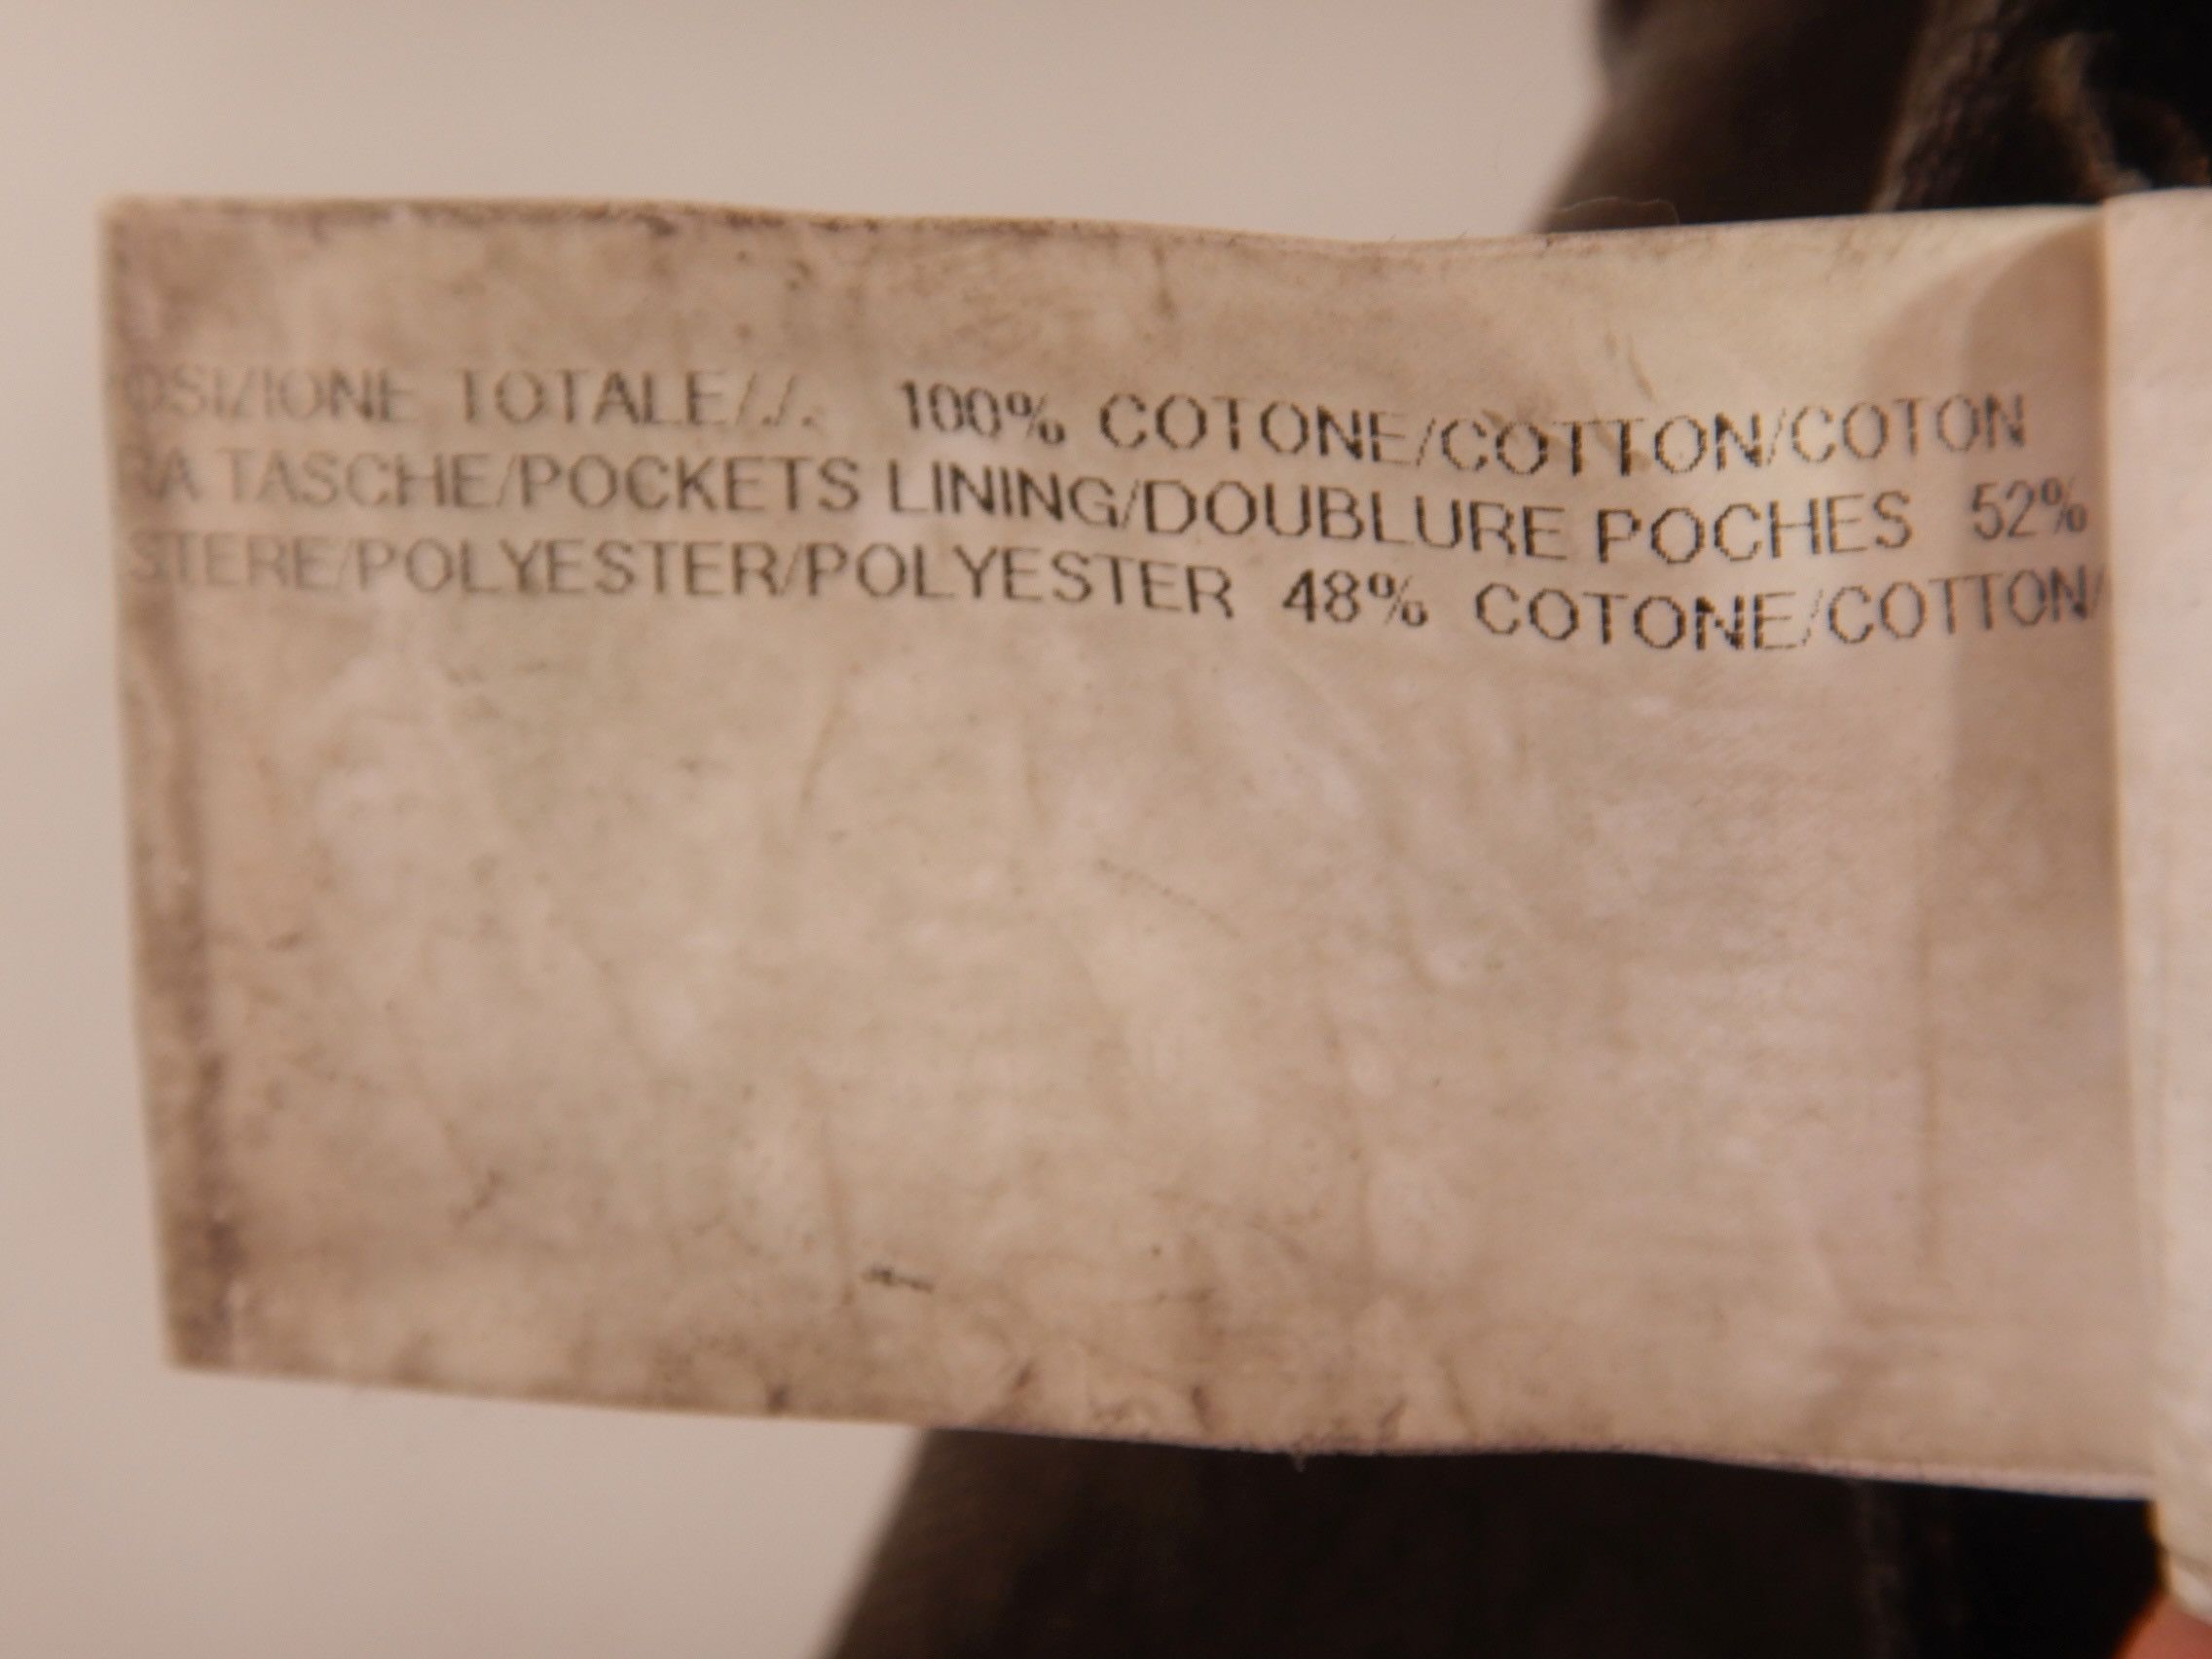 OSIZIONE TOTALE/./. 100% COTONE/COTTON/COTON
RA TASCHE/POCKETS LINING/DOUBLURE POCHES 52%
STERE/POLYESTER/POLYESTER 48% COTONE/COTTON/